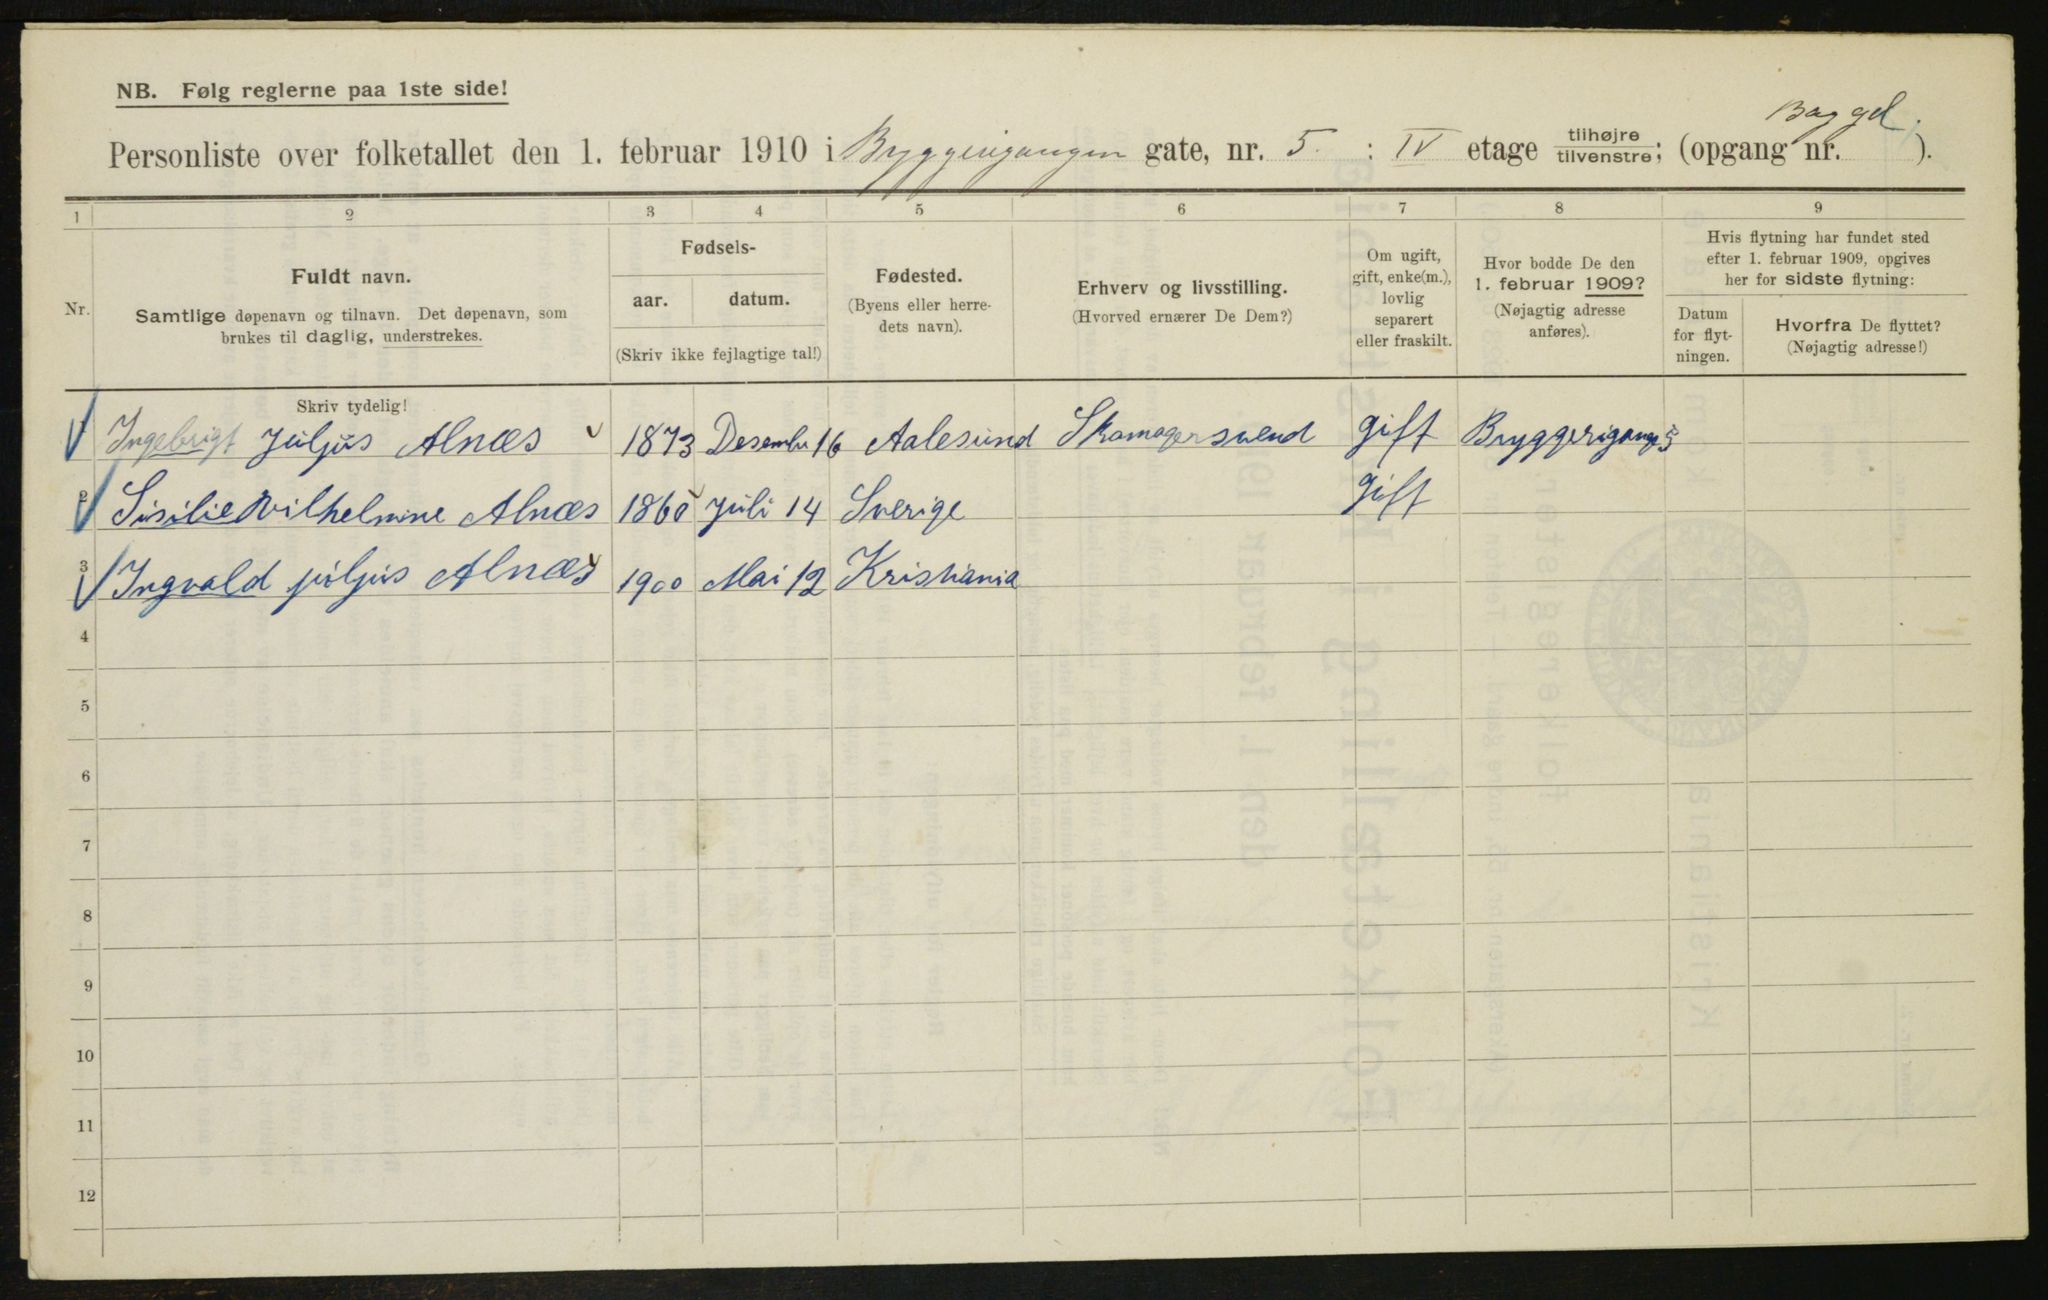 NB. Følg reglerne paa 1ste side!
Baggd.
Personliste over folketallet den 1. februar 1910 i Bryggerigangen gate, nr. 5. : IV etage tilhøjre tilvenstre; (opgang nr. ).
1 2 3 4 5 6 7 8 9
Nr.
Fuldt navn.
Samtlige døpenavn og tilnavn. Det døpenavn, som
brukes til daglig, understrekes.
Fødsels-
aar. datum.
(Skriv ikke fejlagtige tal!)
Fødested.
(Byens eller herre-
dets navn).
Erhverv og livsstilling.
(Hvorved ernærer De Dem?)
Om ugift,
gift, enke(m.),
lovlig
separert
eller fraskilt.
Hvor bodde De den
1. februar 1909?
(Nøjagtig adresse
anføres).
Hvis flytning har fundet sted
efter 1. februar 1909, opgives
her for sidste flytning:
Datum
for flyt-
ningen.
Hvorfra De flyttet?
(Nøjagtig adresse!)
Skriv tydelig!
Ingebrigt Juljus Alnæs 1873 Desember 16 Aalesund Skomagersvend gift Bryggerigange 5
2 Sisilie Wilhelmine Alnæs 1860 Juli 14 Sverige gift
3 Ingvald juljus Alnæs 1900 Mai 12 Kristiania
4
5
6
7
8
9
10
11
12